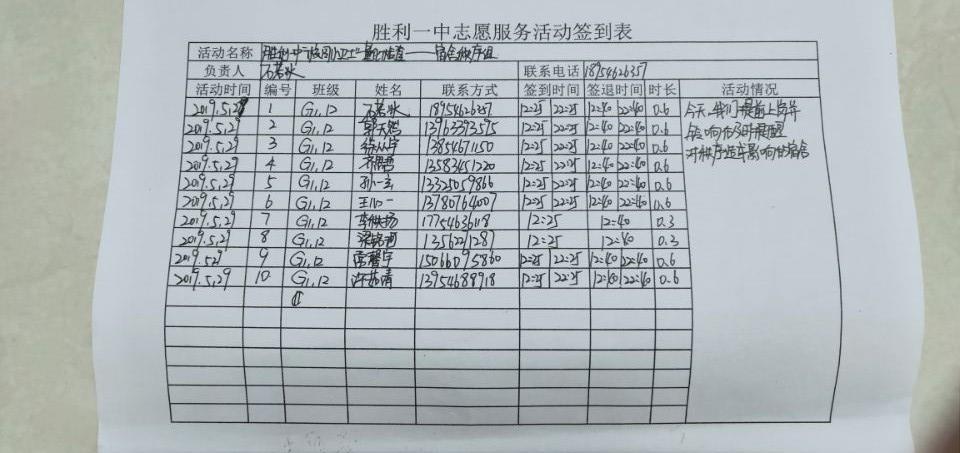 胜利一中志愿服务活动签到表
活动名称 胜利一中"校园小卫士"量化检查——宿舍秩序组
负责人 石若冰 联系电话 18954626357
活动时间 编号 班级 姓名 联系方式 签到时间 签退时间 时长 活动情况
2019.5.29 1 G1.12 石若冰 18954626357 12:25 22:25 12:40 22:40 0.6 今天,我们提前上岗并
2019.5.29 2 G1.12 13963393595 12:25 22:25 12:40 22:40 0.6 提醒
2019.5.29 3 G1.12 13854671150 12:25 22:25 12:40 22:40 0.6 对秩序造成影响的宿舍
2019.5.29 4 G1.12 13583451220 12:25 22:25 12:40 22:40 0.6
2019.5.29 5 G1.12 孙一 13325059866 12:25 22:25 12:40 22:40 0.6
2019.5.29 6 G1.12 王心一 13780764007 12:25 22:25 12:40 22:40 0.6
2019.5.29 7 G1.12 李 17754636118 12:25 12:40 0.3
2019.5.29 8 G1.12 梁 12:25 12:40 0.3
2019.5.29 9 G1.12 馨宇 15066095860 12:25 22:25 12:40 22:40 0.6
2019.5.29 10 G1.12 许茹清 13954688918 12:25 22:25 12:40 22:40 0.6